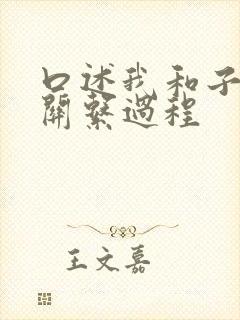 口述我和子
關繫過程
王文嘉